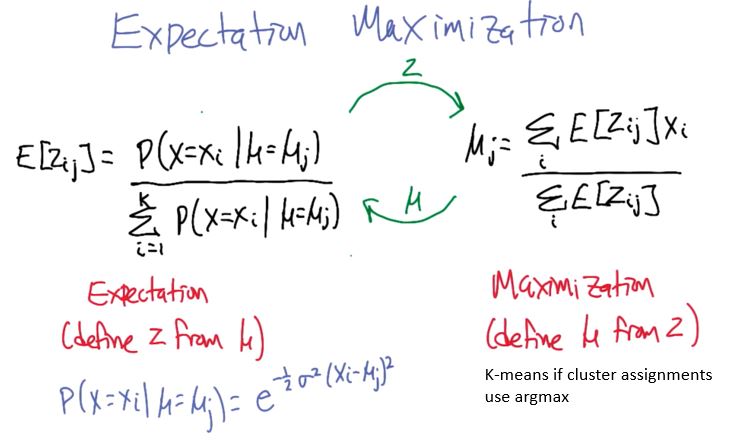 Expectation Maximization
Z
E[Zij] = P(X=Xi | μ=μj) / Σ_{i=1}^{K} P(X=Xi | μ=μj)
μj = Σ_i E[Zij] Xi / Σ_i E[Zij]
μ
Expectation
(define Z from μ)
P(X=Xi | μ=μj) = e^{-1/2 σ² (Xi-μj)²}
Maximization
(define μ from Z)
K-means if cluster assignments
use argmax